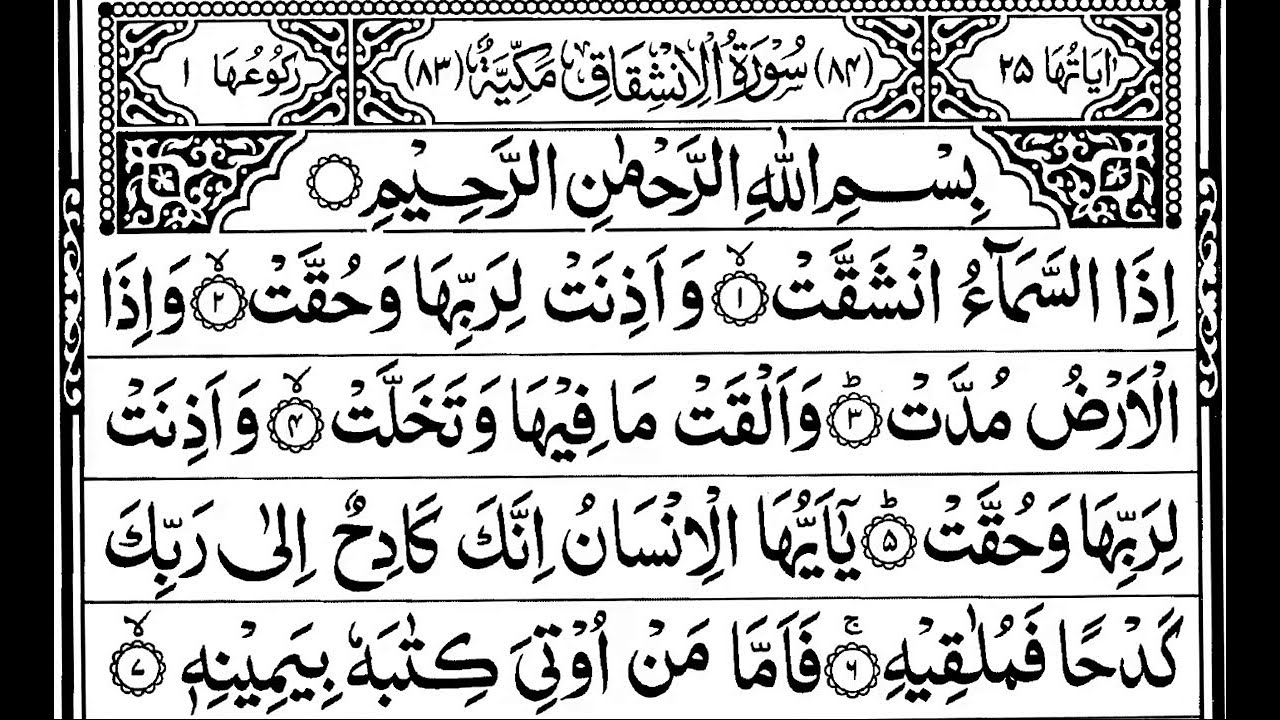 اٰيَاتُهَا ٢٥ (٨٤) سُوْرَةُ الْاِنْشِقَاقِ مَكِّيَّةٌ (٨٣) رَكُوْعُهَا ١
بِسْمِ اللّٰهِ الرَّحْمٰنِ الرَّحِيْمِ
اِذَا السَّمَآءُ انْشَقَّتْ ۙ﴿١﴾ وَ اَذِنَتْ لِرَبِّهَا وَ حُقَّتْ ۙ﴿٢﴾ وَ اِذَا
الْاَرْضُ مُدَّتْ ؕ﴿٣﴾ وَ اَلْقَتْ مَا فِيْهَا وَ تَخَلَّتْ ۙ﴿٤﴾ وَ اَذِنَتْ
لِرَبِّهَا وَ حُقَّتْ ؕ﴿٥﴾ يٰۤاَيُّهَا الْاِنْسَانُ اِنَّكَ كَادِحٌ اِلٰى رَبِّكَ
كَدْحًا فَمُلٰقِيْهِ ۚ﴿٦﴾ فَاَمَّا مَنْ اُوْتِيَ كِتٰبَهٗ بِيَمِيْنِهٖ ۙ﴿٧﴾